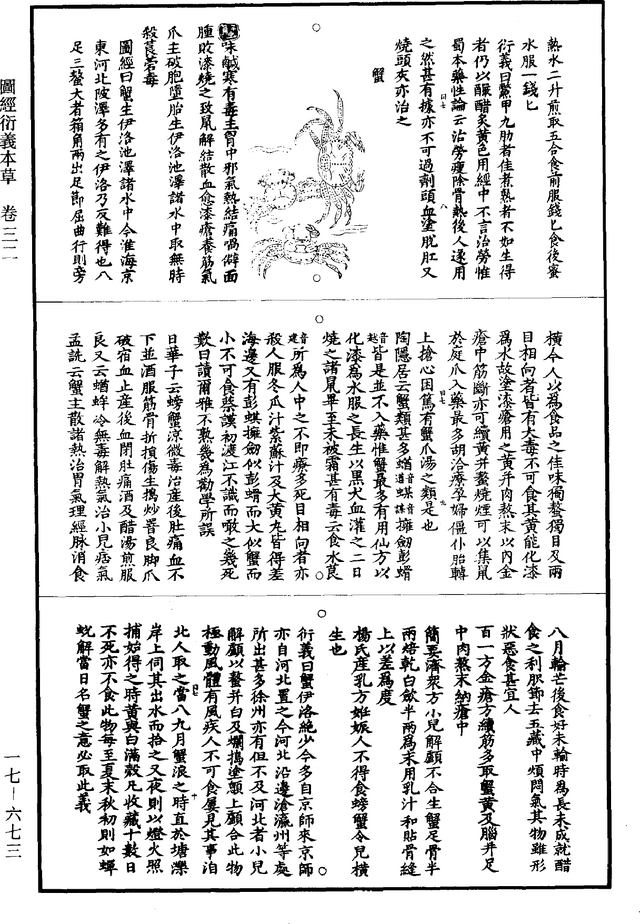 熱水二升煎取五合食前服錢匕食後蜜
水服一錢匕
衍義曰鱉甲九肋者佳煮熟者不如生得
者仍以釅醋炙黃色用經中不言治勞惟
蜀本藥性論云治勞瘦除骨熱後人遂用
之然甚有據亦不可過劑頭血塗脫肛又
燒頭灰亦治之
蟹
味鹹寒有毒主胷中邪氣熱結痛喎僻面
腫敗漆燒之致鼠解結散血愈漆瘡養筋氣
爪主破胞墮胎生伊洛池澤諸水中取無時
殺莨菪毒
圖經曰蟹生伊洛池澤諸水中今淮海京
東河北陂澤多有之伊洛乃反難得也八
足二螯大者箱角兩出足節屈曲行則旁
橫今人以為食品之佳味獨螯獨目及兩
目相向者皆有大毒不可食其黃能化漆
為水故塗漆瘡用之黃并肉熬末以內金
瘡中筋斷亦可續黃并螯燒煙可以集鼠
於庭爪入藥最多胡洽療孕婦僵仆胎轉
上搶心困篤有蟹爪湯之類是也
陶隱居云蟹類甚多蝤蛑擁劍彭螖
皆是並不入藥惟蟹最多有用仙方以
化漆為水服之長生以黑犬血灌之三日
燒之諸鼠畢至未被霜甚有毒云食水莨
所為人中之不即療多死目相向者亦
殺人服冬瓜汁紫蘇汁及大黃丸皆得差
海邊又有彭蜞擁劍似彭螖而大似蟹而
小不可食蔡謨初渡江不識而噉之幾死
歎曰讀爾雅不熟幾為勸學所誤
日華子云螃蟹涼微毒治產後肚痛血不
下並酒服筋骨折損傷生搗炒罯良脚爪
破宿血止產後血閉肚痛酒及醋湯煎服
良又云蝤蛑冷無毒解熱氣治小兒痞氣
孟詵云蟹主散諸熱治胃氣理經脉消食
八月輸芒後食好未輸時為長未成就醋
食之利肢節去五藏中煩悶氣其物雖形
狀惡食甚宜人
百一方金瘡方續筋多取蟹黃及腦并足
中肉熬末納瘡中
簡要濟衆方小兒解顱不合生蟹足骨半
兩焙乾白斂半兩為末用乳汁和貼骨縫
上以差為度
楊氏產乳方姙娠人不得食螃蟹令兒橫
生也
衍義曰蟹伊洛絶少今多自京師來京師
亦自河北置之今河北沿邊滄瀛州等處
所出甚多徐州亦有但不及河北者小兒
解顱以螯并白及爛搗塗顖上顱合此物
極動風體有風疾人不可食屢見其事泊
北人取之當八九月蟹浪之時直於塘濼
岸上伺其出水而拾之又夜則以燈火照
捕始得之時黃與白滿殼凡收藏十數日
不死亦不食此物每至夏末秋初則如蟬
蛻解當日名蟹之意必取此義
圖經衍義本草　卷三二
一七—六七三